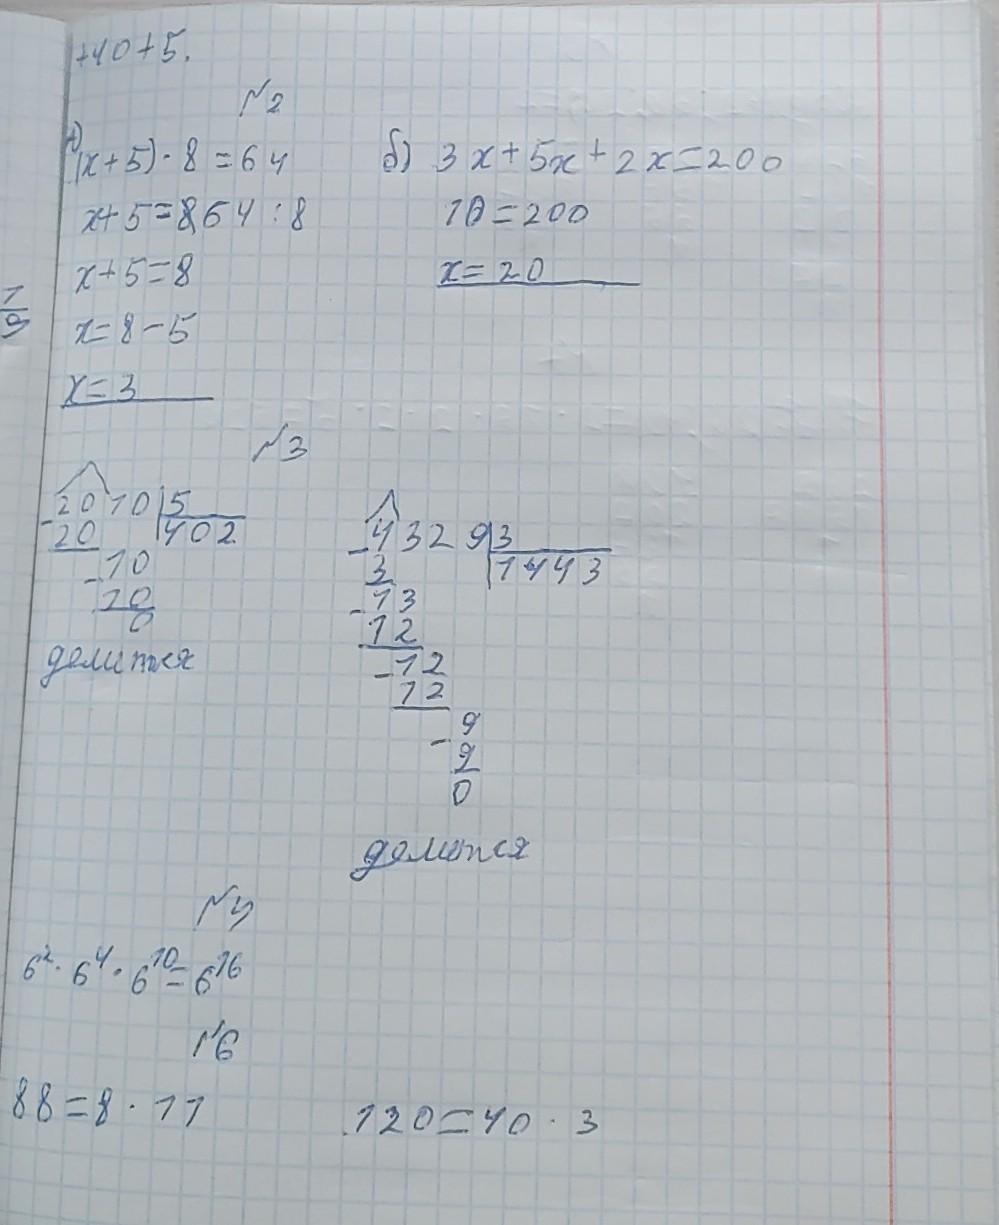 +40+5.
№2
а) (x+5)·8=64
x+5=8,64:8
x+5=8
x=8-5
x=3
б) 3x+5x+2x=200
10=200
x=20
№3
2010|5
20 402
10
10
0
делится
4329|3
3 1443
13
12
12
12
9
9
0
делится
№4
6²·6⁴·6¹⁰=6¹⁶
№6
88=8·11
120=40·3